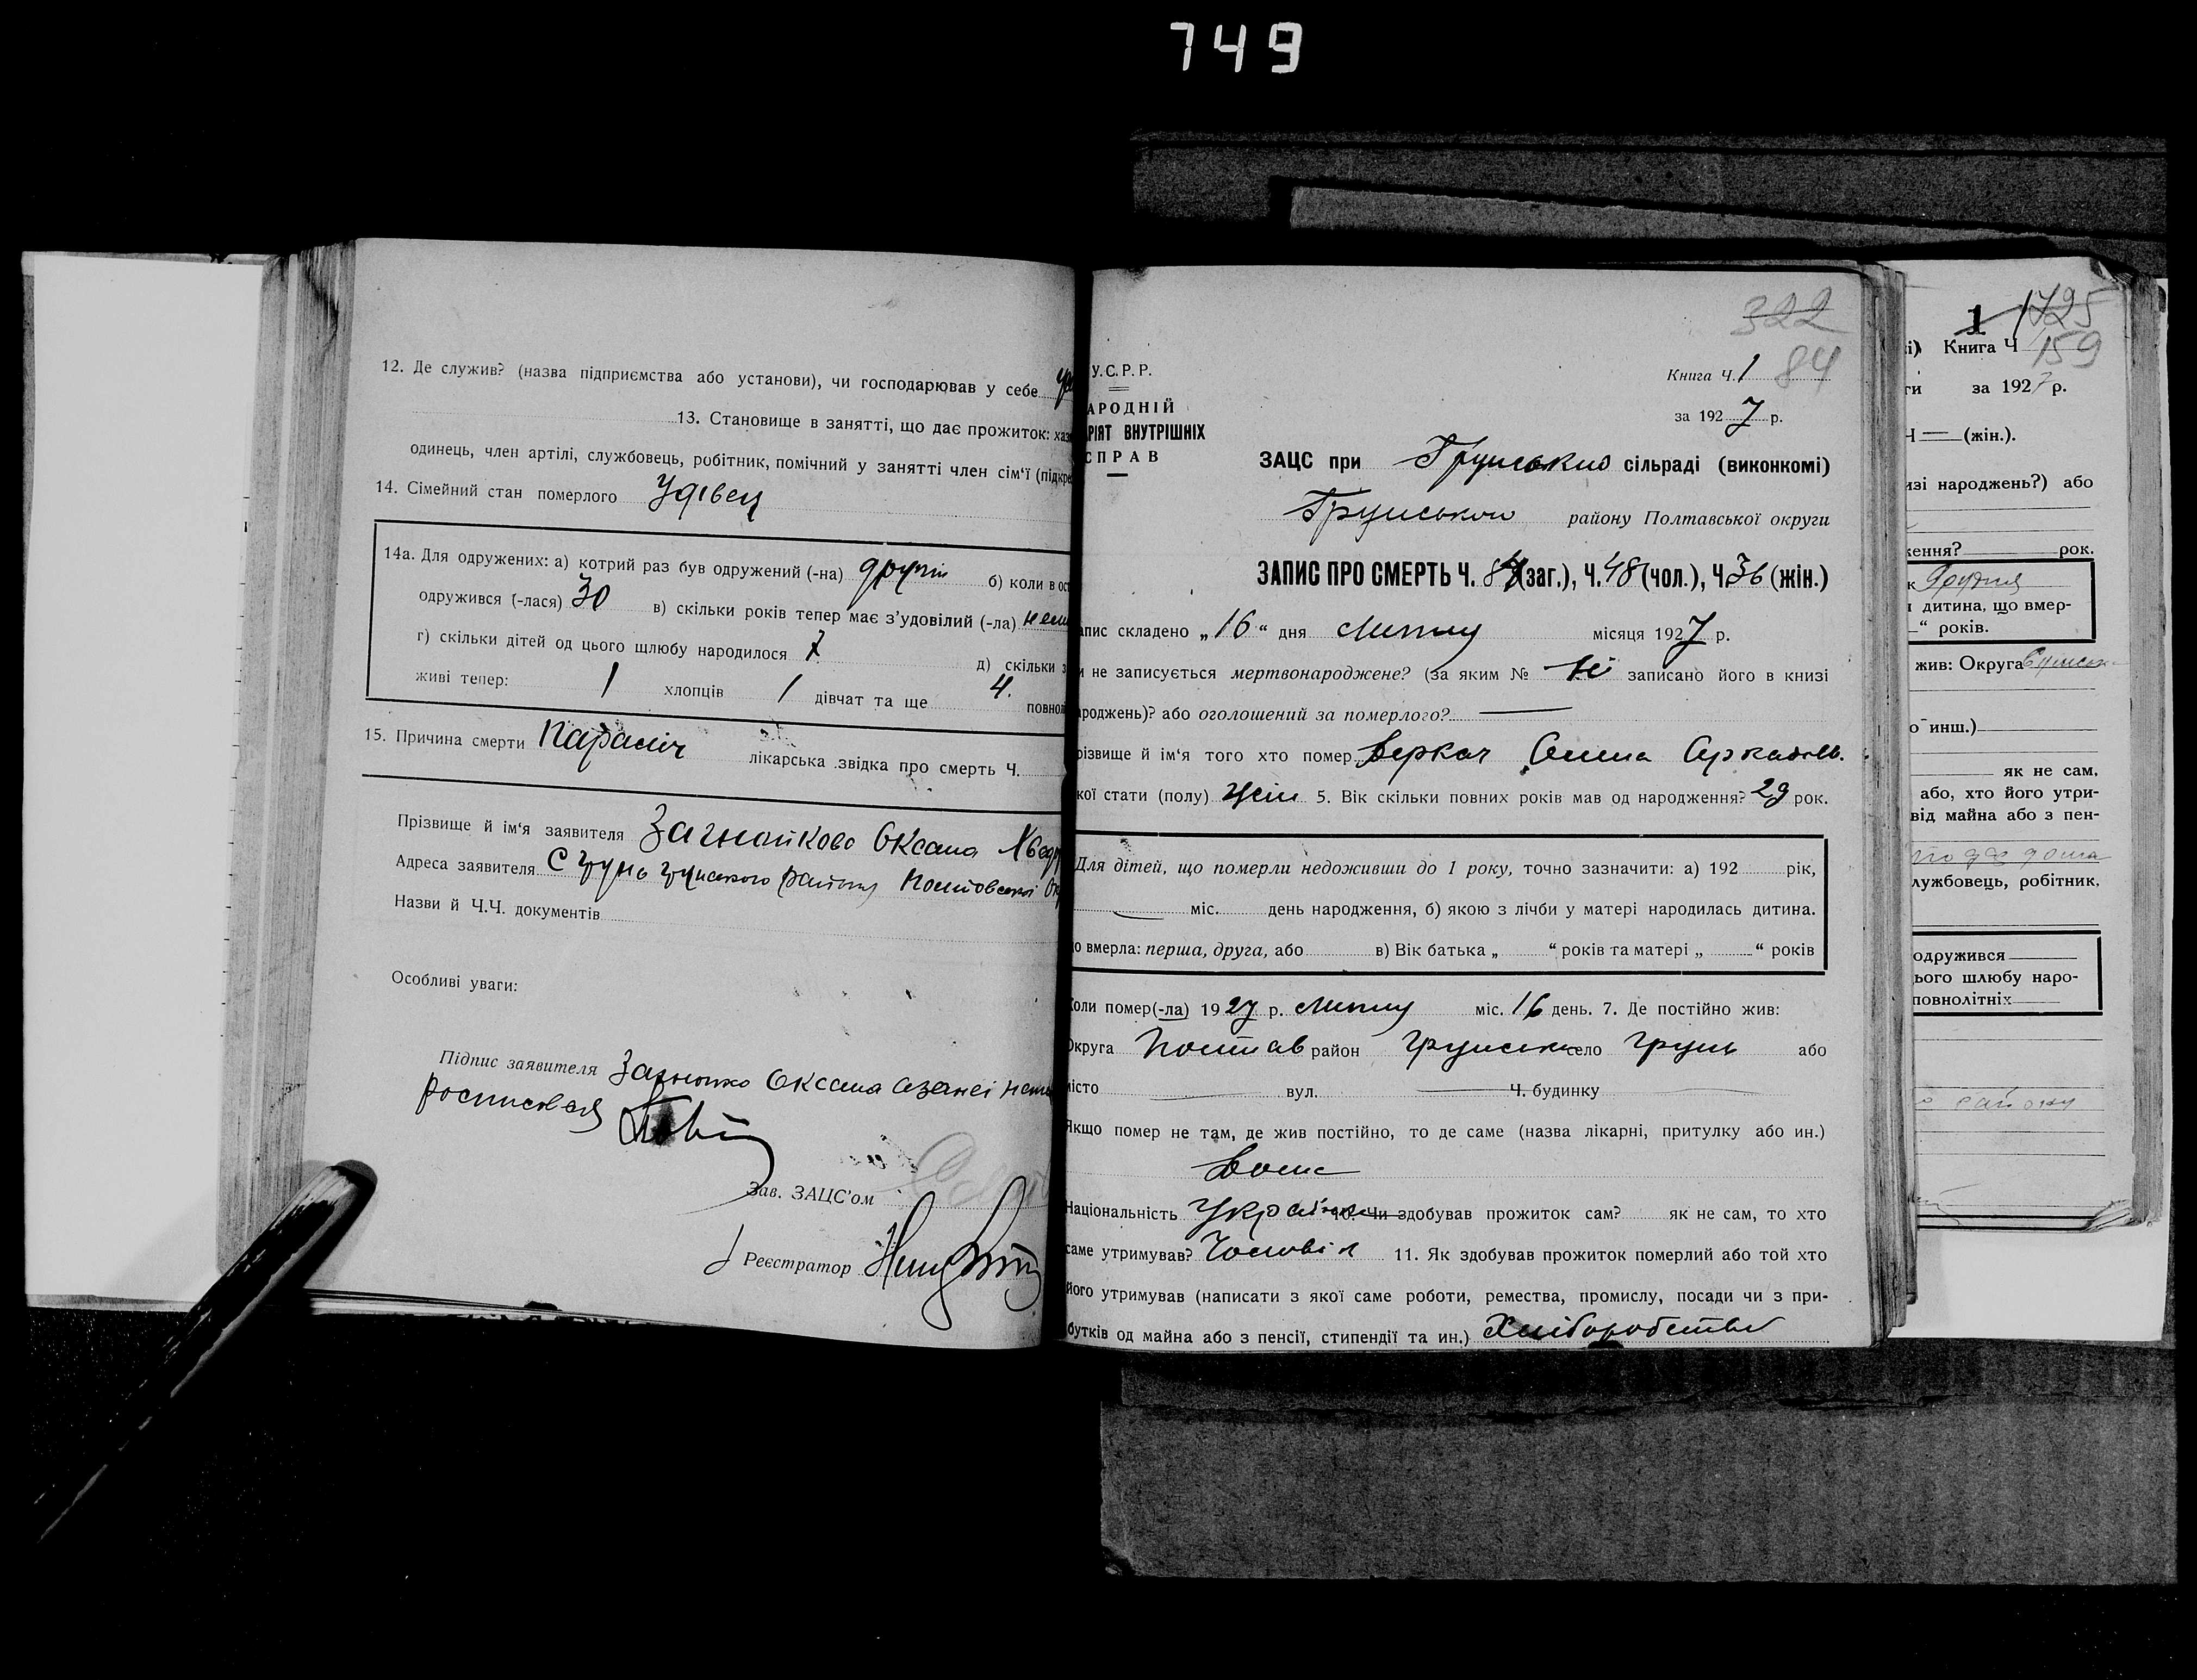 749
12. Де служив? (назва підприємства або установи), чи господарював у себе
13. Становище в занятті, що дає прожиток: хаз
одинець, член артілі, службовець, робітник, помічний у занятті член сім'ї (підкре
14. Сімейний стан померлого Удівец
14а. Для одружених: а) котрий раз був одружений (-на) другий б) коли в ост
одружився (-лася) 30 в) скільки років тепер має з'удовілий (-ла)
г) скільки дітей од цього щлюбу народилося 7 д) скільки з
живі тепер: 1 хлопців 1 дівчат та ще 4. повнол
15. Причина смерти Параліч лікарська звідка про смерть Ч.
Прізвище й ім'я заявителя Оксана
Адреса заявителя С Грунь Грунського району Полтавської Ок
Назви й Ч.Ч. документів
Особливі уваги:
Підпис заявителя Оксана
росписалася
Зав. ЗАЦС'ом
Реєстратор
322
У.С.Р.Р.
Книга Ч. 1 84
АРОДНІЙ
за 1927 р.
РІЯТ ВНУТРІШНІХ
СПРАВ
ЗАЦС при Грунською сільраді (виконкомі)
Грунського району Полтавської округи
ЗАПИС ПРО СМЕРТЬ Ч. 84 (заг.), Ч. 48 (чол.), Ч. 36 (жін.)
апис складено „16“ дня Лютня місяця 1927 р.
и не записується мертвонароджене? (за яким № Ні записано його в книзі
ароджень)? або оголошений за померлого?
різвище й ім'я того хто помер Веркач Аркадьев.
кої стати (полу) жін 5. Вік скільки повних років мав од народження? 29 рок.
Для дітей, що померли недоживши до 1 року, точно зазначити: а) 192 рік,
міс. день народження, б) якою з лічби у матері народилась дитина.
о вмерла: перша, друга, або в) Вік батька „ “ років та матері „ “ років
Коли помер(-ла) 1927 р. Лютня міс. 16 день. 7. Де постійно жив:
Округа Полтав район Грунськ село Грунь або
місто вул. Ч. будинку
Якщо помер не там, де жив постійно, то де саме (назва лікарні, притулку або ин.)
Національність Українка 10. Чи здобував прожиток сам? як не сам, то хто
саме утримував? Чоловік 11. Як здобував прожиток померлий або той хто
його утримував (написати з якої саме роботи, ремества, промислу, посади чи з при-
бутків од майна або з пенсії, стипендії та ин.) Хліборобства
1 1725
і) Книга Ч 159
ги за 1927 р.
Ч — (жін.).
изі народжень?) або
ження? рок.
к
я дитина, що вмер-
“ років.
жив: Округа
о инш.)
як не сам,
або, хто його утри-
від майна або з пен-
лужбовець, робітник,
одружився
ього шлюбу наро-
повнолітніх
району